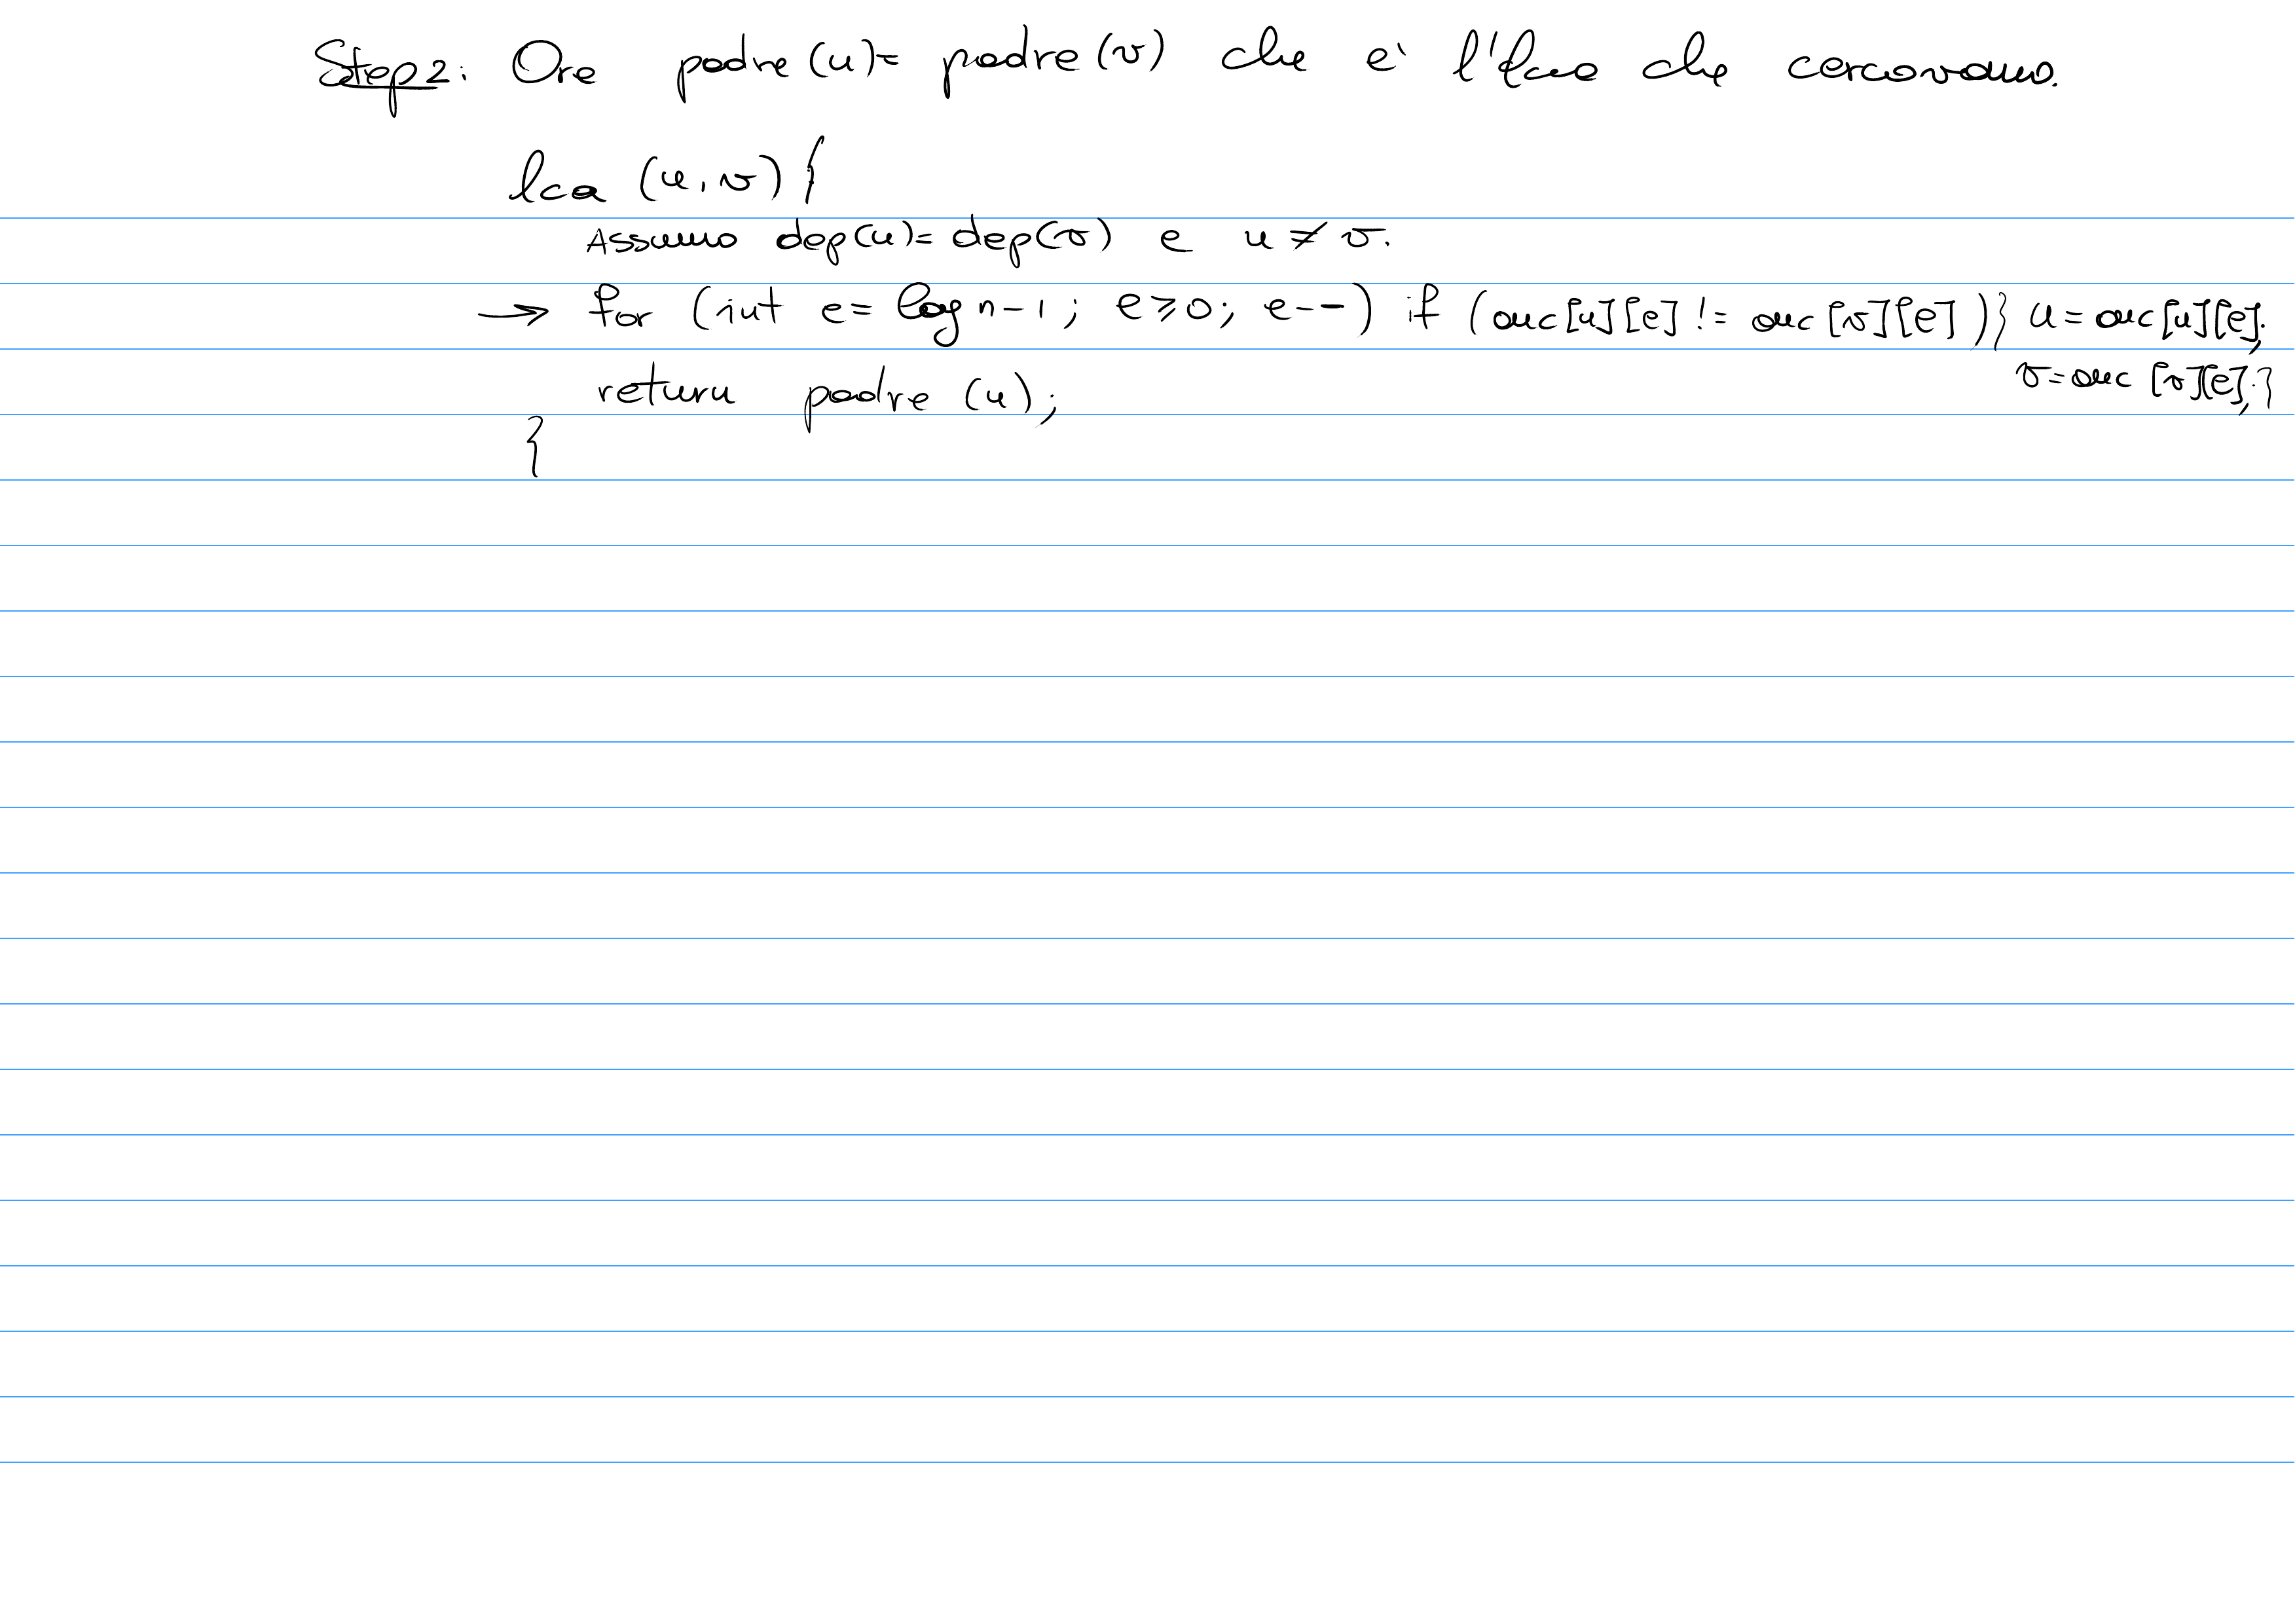 Step 2: Ora padre(u)= padre(v) che e' l'lca che cercavamo.
lca (u,v) {
Assumo dep(u)= dep(v) e u ≠ v.
→ for (int e= log n-1 ; e≥0; e--) if (anc[u][e] != anc[v][e]) { u=anc[u][e];
v=anc[v][e];}
return padre (u);
}